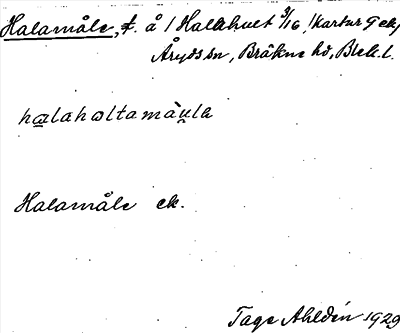 Halamåle, t. å 1 Halahult 3/16, (kartur Gek,
Åryds sn, Bräkne hd, Blek. l.
halahɷltamàu̯la
Halamåle ek.
Tage Ahldén 1929